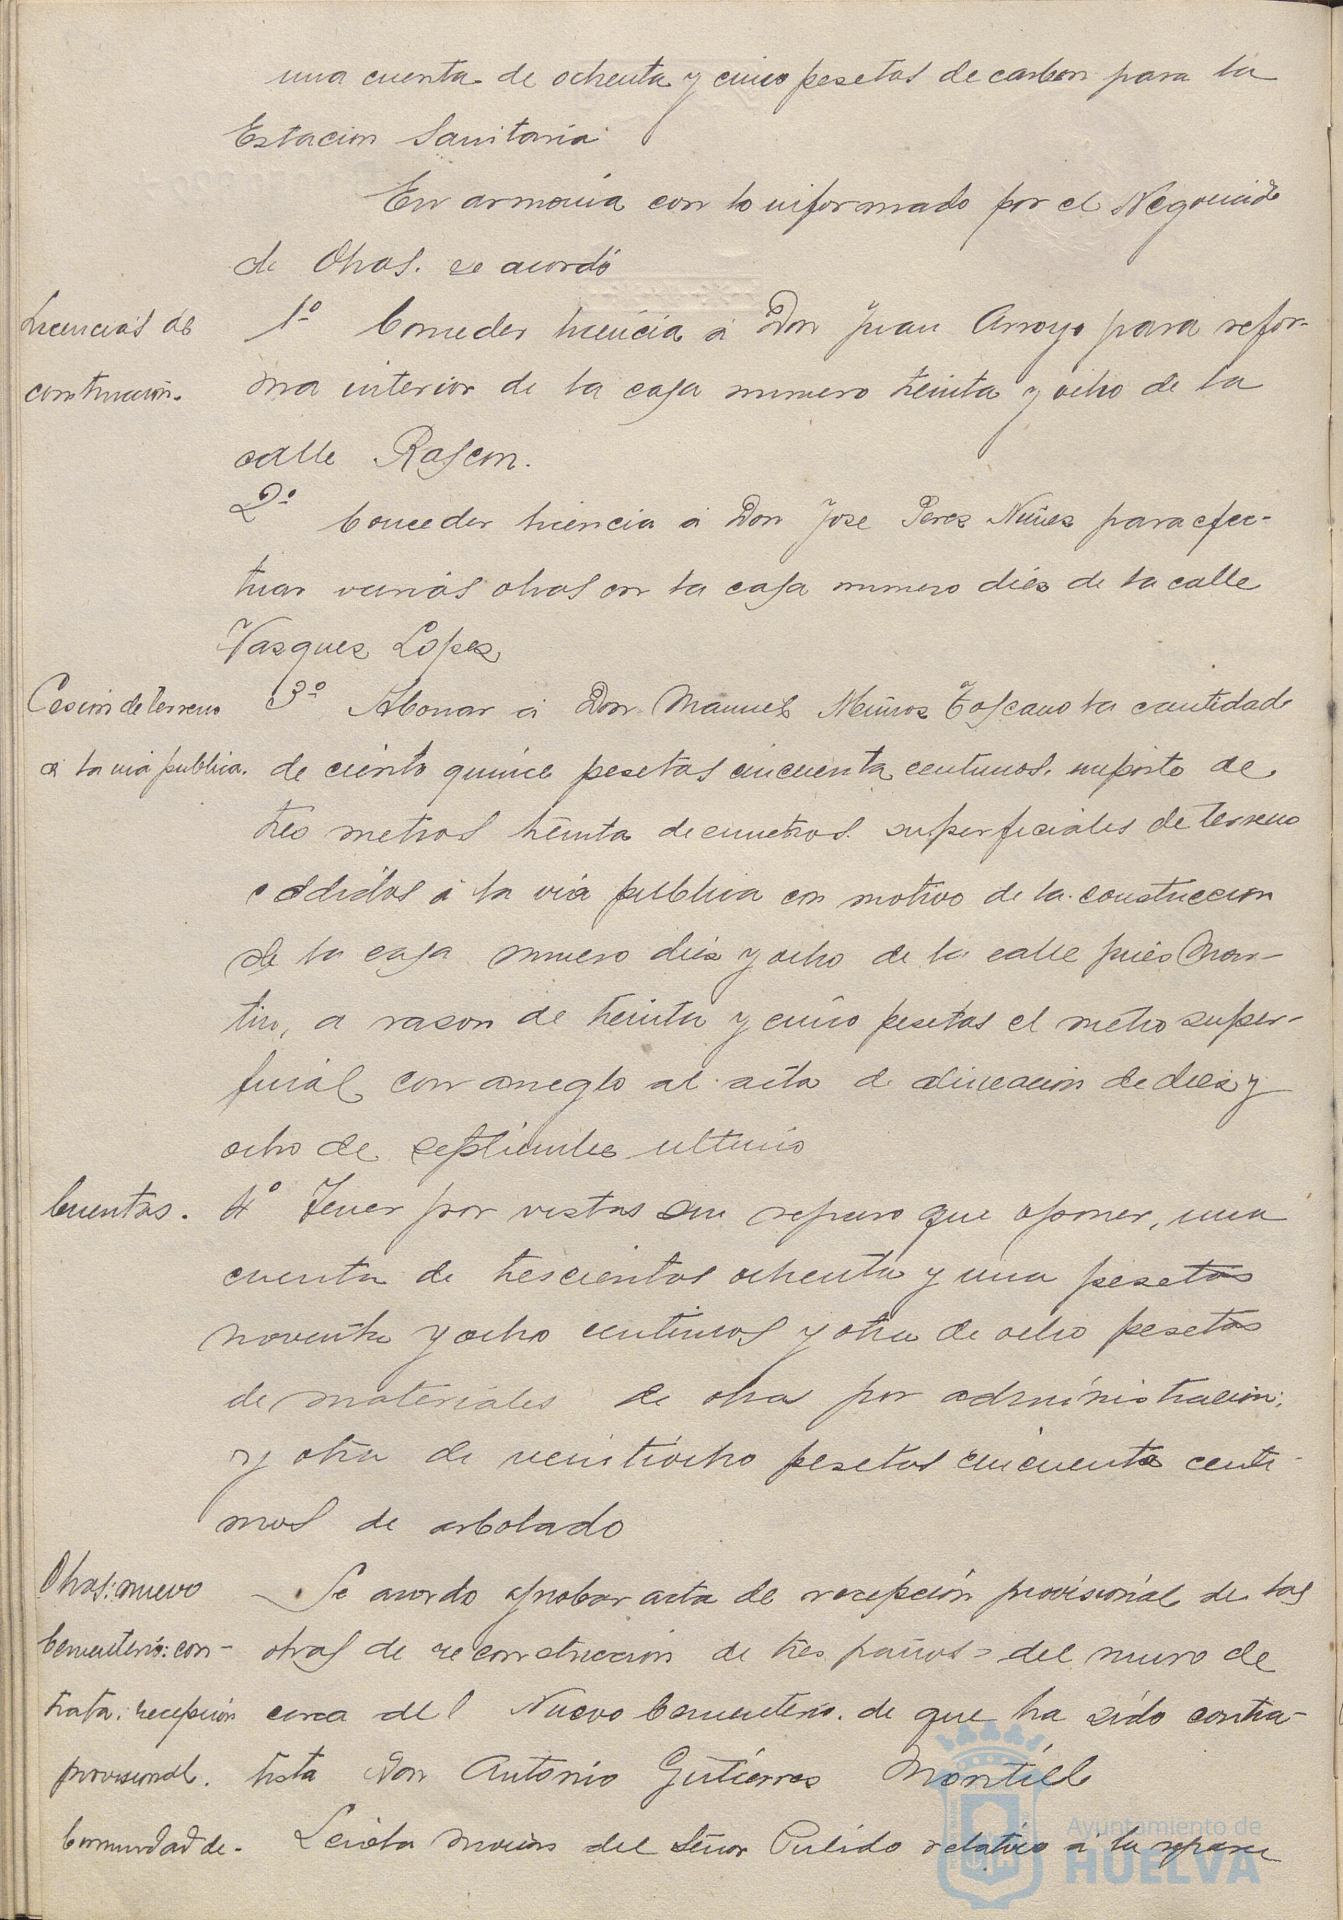 una cuenta de ochenta y cinco pesetas de carbon para la
Estacion Sanitaria
En armonia con lo informado por el Negociado
de Obras. se acordó
Licencias de
construccion.
1º Conceder licencia á Don Juan Arroyo para refor-
ma interior de la casa numero treinta y ocho de la
calle Rascon.
2º Conceder licencia á Don Jose Perez Nuñez para efec-
tuar varias obras en la casa numero diez de la calle
Vazquez Lopez
Cesion de terreno
á la via publica.
3º Abonar á Don Manuel Muñoz Toscano la cantidad
de ciento quince pesetas cincuenta centimos. importe de
tres metros treinta decimetros superficiales de terreno
cedidos á la via publica con motivo de la construccion
de la casa numero diez y ocho de la calle Mar-
tin, a razon de treinta y cinco pesetas el metro super-
ficial con arreglo al acta de alineacion de diez y
ocho de septiembre ultimo
Cuentas.
4º Tener por vistas sin reparo que oponer, una
cuenta de trescientas ochenta y una pesetas
noventa y ocho centimos y otra de ocho pesetas
de materiales de obra por administracion;
y otra de veintiocho pesetas cincuenta centi-
mos de arbolado
Obras: nuevo
Cementerio: con-
trata: recepcion
provisional.
Se acordo aprobar acta de recepcion provisional de las
obras de reconstruccion de tres paños del muro de
cerca del Nuevo Cementerio. de que ha sido contra-
tista Don Antonio Gutierrez Montiel
Comunidad de-
Leida mocion del Señor Pulido relativa á la
Ayuntamiento de
HUELVA